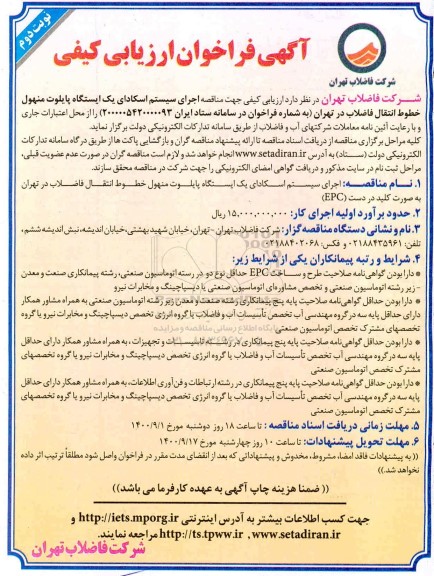 نوبت دوم
آگهی فراخوان ارزیابی کیفی
شرکت فاضلاب تهران
شرکت فاضلاب تهران در نظر دارد ارزیابی کیفی جهت مناقصه اجرای سیستم اسکادای یک ایستگاه پایلوت منهول
خطوط انتقال فاضلاب در تهران (به شماره فراخوان در سامانه ستاد ایران ۲۰۰۰۰۰۵۴۲۰۰۰۰۰۹۳) را از محل اعتبارات جاری
و با رعایت آئین نامه معاملات شرکتهای آب و فاضلاب از طریق سامانه تدارکات الکترونیکی دولت برگزار نماید.
کلیه مراحل برگزاری مناقصه از دریافت اسناد مناقصه تا ارائه پیشنهاد مناقصه گران و بازگشایی پاکت ها از طریق درگاه سامانه تدارکات
الکترونیکی دولت (ستاد) به آدرس www.setadiran.ir انجام خواهد شد و لازم است مناقصه گران در صورت عدم عضویت قبلی،
مراحل ثبت نام در سایت مذکور و دریافت گواهی امضای الکترونیکی را جهت شرکت در مناقصه محقق سازند.
۱. نام مناقصه: اجرای سیستم اسکادای یک ایستگاه پایلوت منهول خطوط انتقال فاضلاب در تهران
به صورت کلید در دست (EPC)
۲. حدود برآورد اولیه اجرای کار: ۱۵,۰۰۰,۰۰۰,۰۰۰ ریال
۳. نام و نشانی دستگاه مناقصه گزار: شرکت فاضلاب تهران - تهران، خیابان شهید بهشتی، خیابان اندیشه، نبش اندیشه ششم،
تلفن: ۰۲۱۸۸۴۳۵۹۶۱ و فکس: ۰۲۱۸۸۴۰۲۰۶۸
۴. شرایط و رتبه پیمانکاران یکی از شرایط زیر:
* دارا بودن گواهی نامه صلاحیت طرح و ساخت EPC حداقل نوع دو در رسته اتوماسیون صنعتی، رشته پیمانکاری صنعت و معدن
- زیر رشته اتوماسیون صنعتی و تخصص مشاوره‌ای اتوماسیون صنعتی یا دیسپاچینگ و مخابرات نیرو
* دارای بودن حداقل گواهی نامه صلاحیت پایه پنج پیمانکاری رشته صنعت و معدن زیر رشته اتوماسیون صنعتی به همراه مشاور همکار
دارای حداقل پایه سه در گروه مهندسی آب تخصص تأسیسات آب و فاضلاب یا گروه انرژی تخصص دیسپاچینگ و مخابرات نیرو یا گروه
تخصصهای مشترک تخصص اتوماسیون صنعتی
* دارا بودن حداقل گواهی نامه صلاحیت پایه پنج پیمانکاری در رشته تاسیسات و تجهیزات، به همراه مشاور همکار دارای حداقل
پایه سه در گروه مهندسی آب تخصص تأسیسات آب و فاضلاب یا گروه انرژی تخصص دیسپاچینگ و مخابرات نیرو یا گروه تخصصهای
مشترک تخصص اتوماسیون صنعتی
* دارا بودن حداقل گواهی نامه صلاحیت پایه پنج پیمانکاری در رشته ارتباطات و فن آوری اطلاعات، به همراه مشاور همکار دارای حداقل
پایه سه در گروه مهندسی آب تخصص تأسیسات آب و فاضلاب یا گروه انرژی تخصص دیسپاچینگ و مخابرات نیرو یا گروه تخصصهای
مشترک تخصص اتوماسیون صنعتی
۵. مهلت زمانی دریافت اسناد مناقصه: تا ساعت ۱۸ روز دوشنبه مورخ ۱۴۰۰/۹/۱
۶. مهلت تحویل پیشنهادات: تا ساعت ۱۰ روز چهارشنبه مورخ ۱۴۰۰/۹/۱۷
(( به پیشنهادات فاقد امضا، مشروط، مخدوش و پیشنهاداتی که بعد از انقضای مدت مقرر در فراخوان واصل شود مطلقاً ترتیب اثر داده
نخواهد شد.))
(( ضمنا هزینه چاپ آگهی به عهده کارفرما می باشد))
جهت کسب اطلاعات بیشتر به آدرس اینترنتی http://iets.mporg.ir و
www.setadiran.ir ، http://ts.tpww.ir مراجعه نمایند.
شرکت فاضلاب تهران